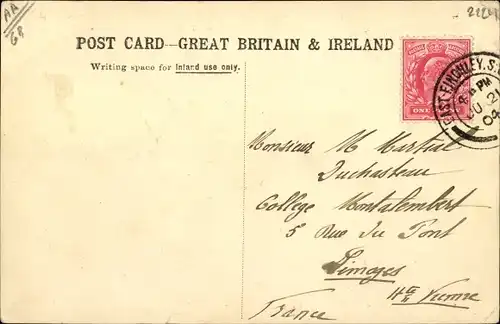 AA
68
POST CARD—GREAT BRITAIN & IRELAND
Writing space for Inland use only.
EAST FINCHLEY. S.
4 PM
JU 21
04
ONE
Monsieur M Martial
Duchasteau
College Montalembert
5 Rue du Pont
Limoges
Hte Vienne
France